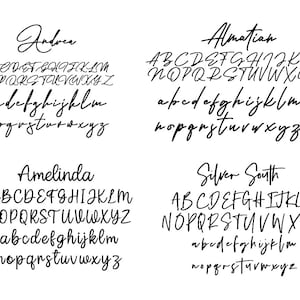 Andrea
ABCDEFGHIJKLM
NOPQRSTUVWXYZ
abcdefghijklm
nopqrstuvwxyz
Almatian
ABCDEFGHIJKL
NOPQRSTUVWXY
abcdefghijklm
nopqrstuvwxyz
Amelinda
ABCDEFGHIJKLM
NOPQRSTUVWXYZ
abcdefghijklm
nopqrstuvwxyz
Silver South
ABCDEFGHIJKL
NOPQRSTUVWXY
abcdefghijklm
nopqrstuvwxyz